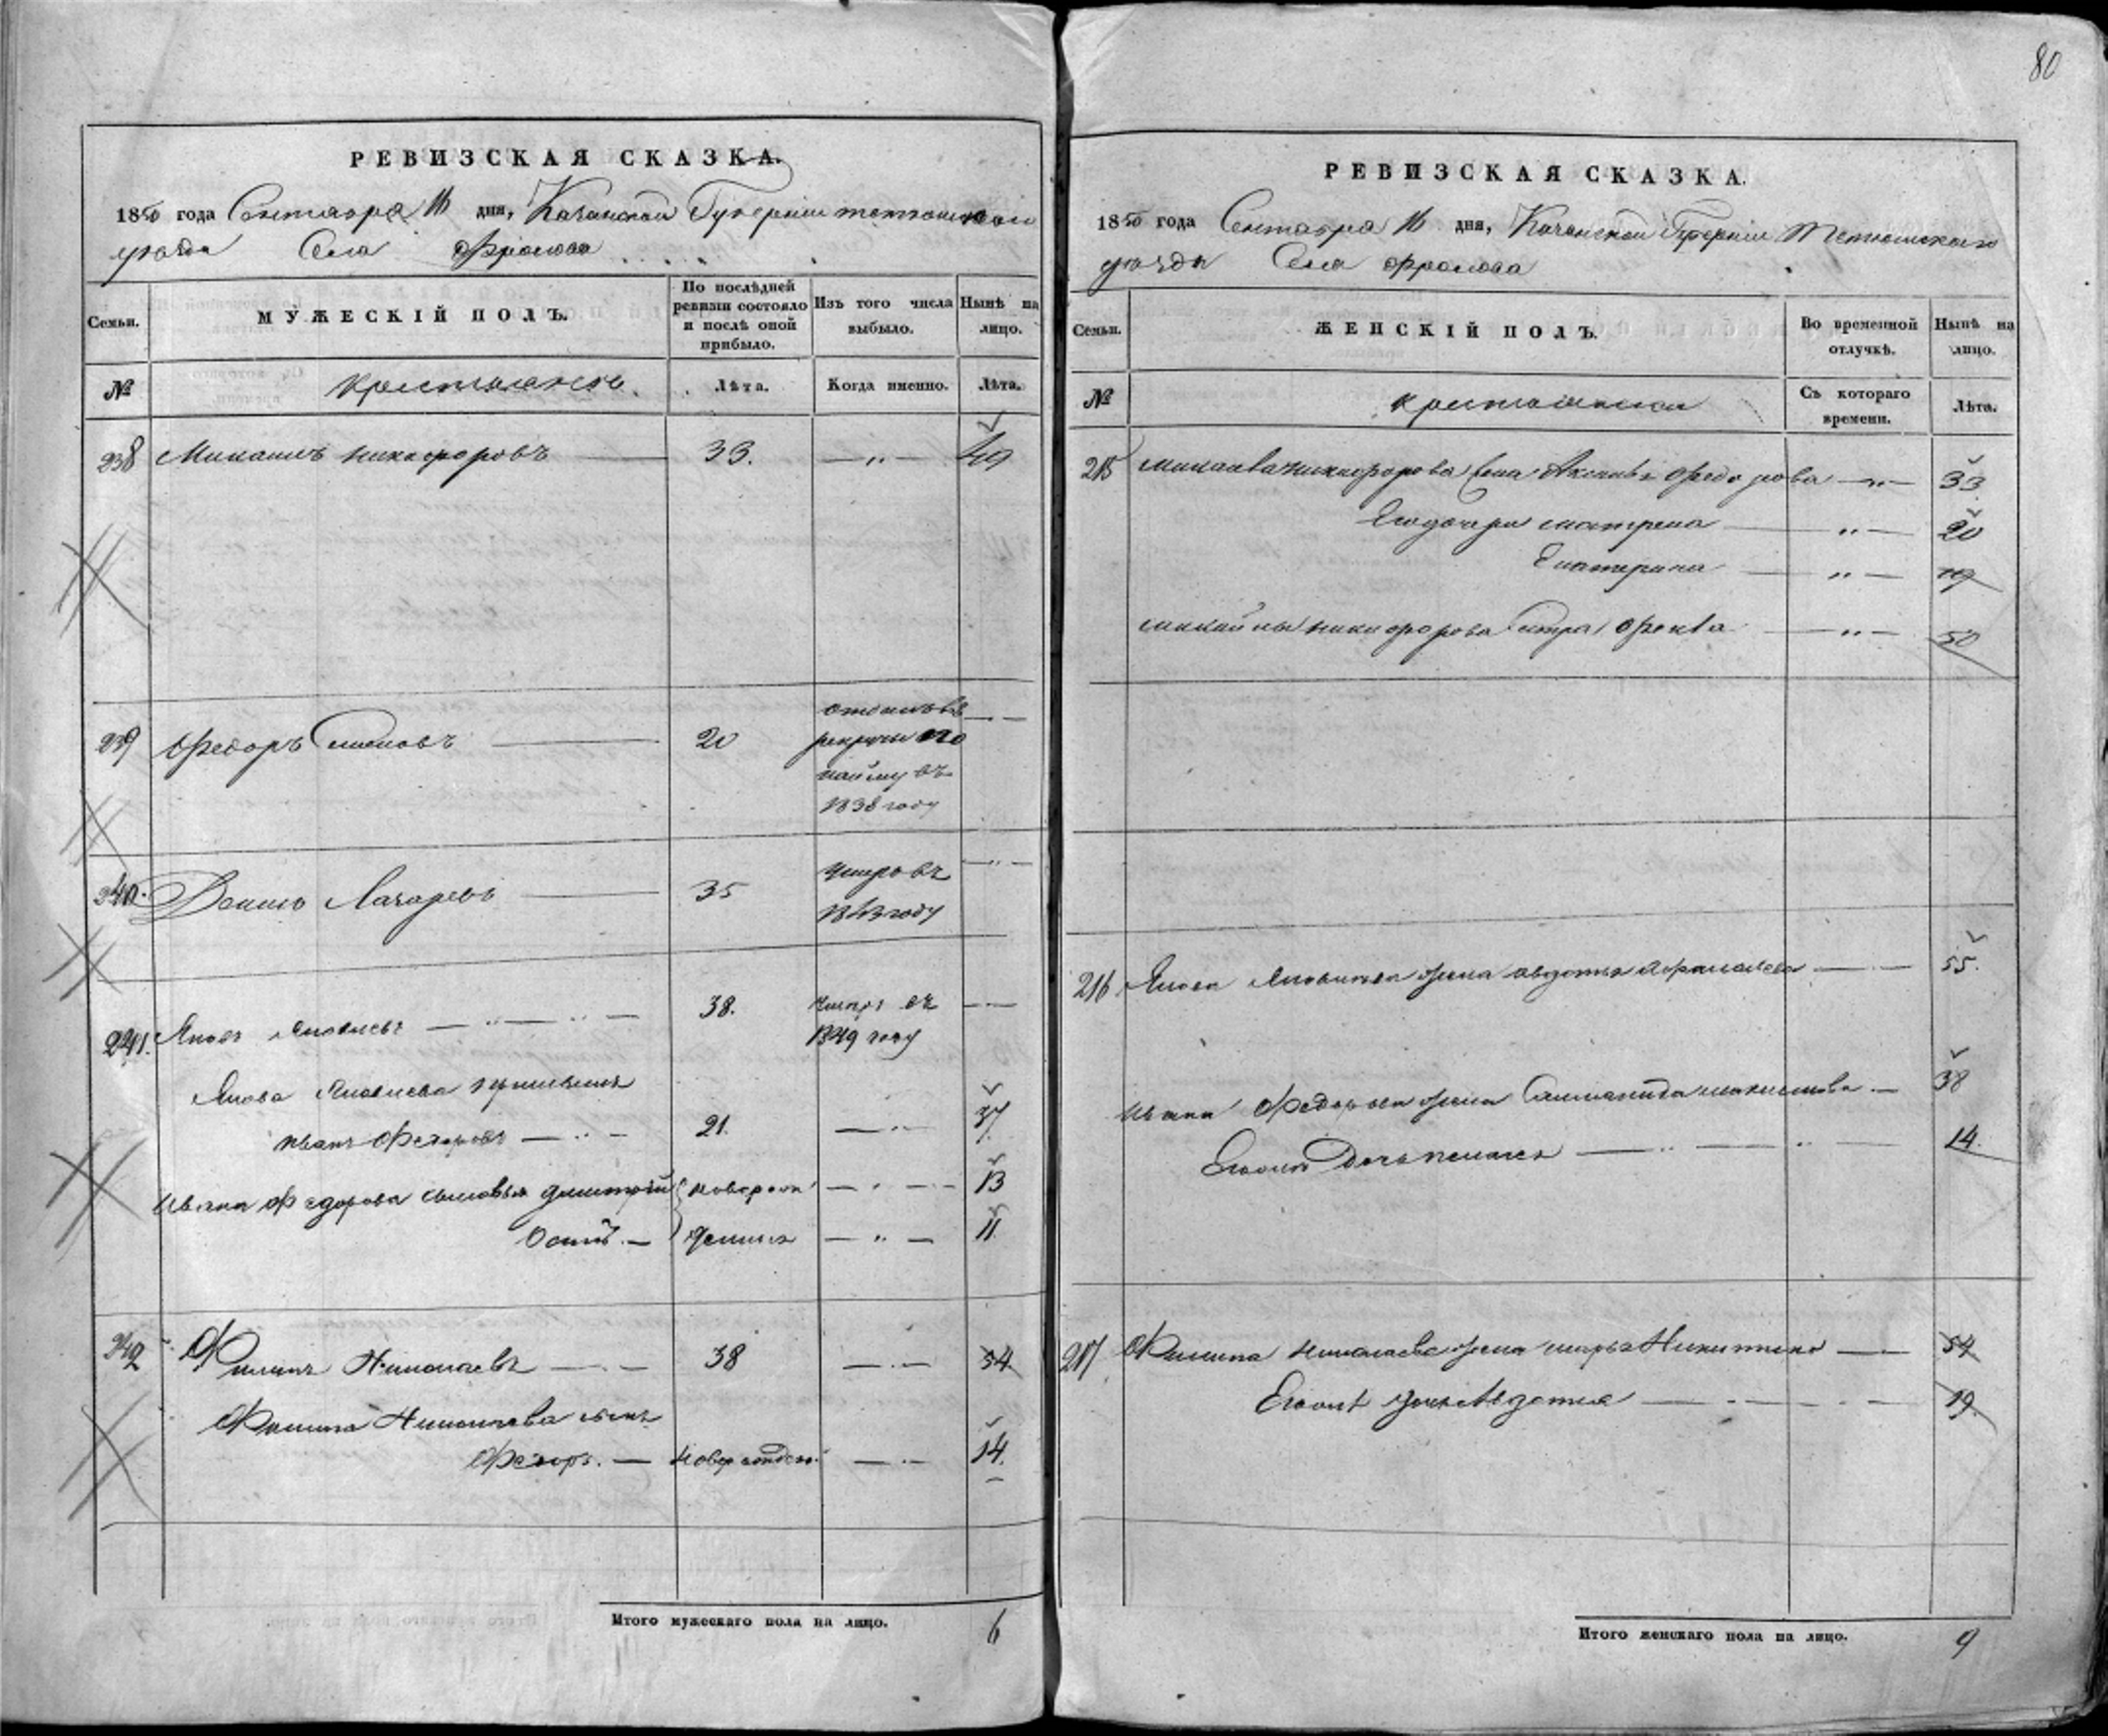 80
РЕВИЗСКАЯ СКАЗКА.
1850 года Сентября 16 дня, Казанской Губернiи Тетюшскаго
уѣзда Села Фролова
Семьи.
МУЖЕСКIЙ ПОЛЪ.
По послѣдней ревизiи состояло и послѣ оной прибыло.
Изъ того числа выбыло.
Нынѣ на лицо.
№
Крестьянъ
Лѣта.
Когда именно.
Лѣта.
238 Никифоровъ 33. 49
239 Федоръ Семеновъ 20
отданъ въ
рекруты по
найму въ
1838 году
240. Лазаревъ 35
умеръ въ
1843 году
241. Яковъ Яковлевъ 38.
умеръ въ
1849 году
Якова Яковлева
Иванъ Федоровъ 21. 37
Ивана Федорова сыновья Дмитрiй новорож 13
Осипъ 11.
242 Филипъ Николаевъ 38 54
Филипа Николаева сынъ
Федоръ. 14.
Итого мужескаго пола на лицо. 6
РЕВИЗСКАЯ СКАЗКА.
1850 года Сентября 16 дня, Казанской Губернiи Тетюшскаго
уѣзда Села Фролова
Семьи.
ЖЕНСКIЙ ПОЛЪ.
Во временной отлучкѣ.
Нынѣ на лицо.
№
Съ котораго времени.
Лѣта.
215 Никифорова жена Федорова 33
Его дочери Матрена 20
Екатерина 19
Никифорова сестра Фекла 50
216 Якова Яковлева жена Авдотья 55.
Ивана Федорова жена 38
Его дочь 14.
217 Филипа Николаева жена Марья Никитина 54
Его дочь Авдотья 19.
Итого женскаго пола на лицо. 9